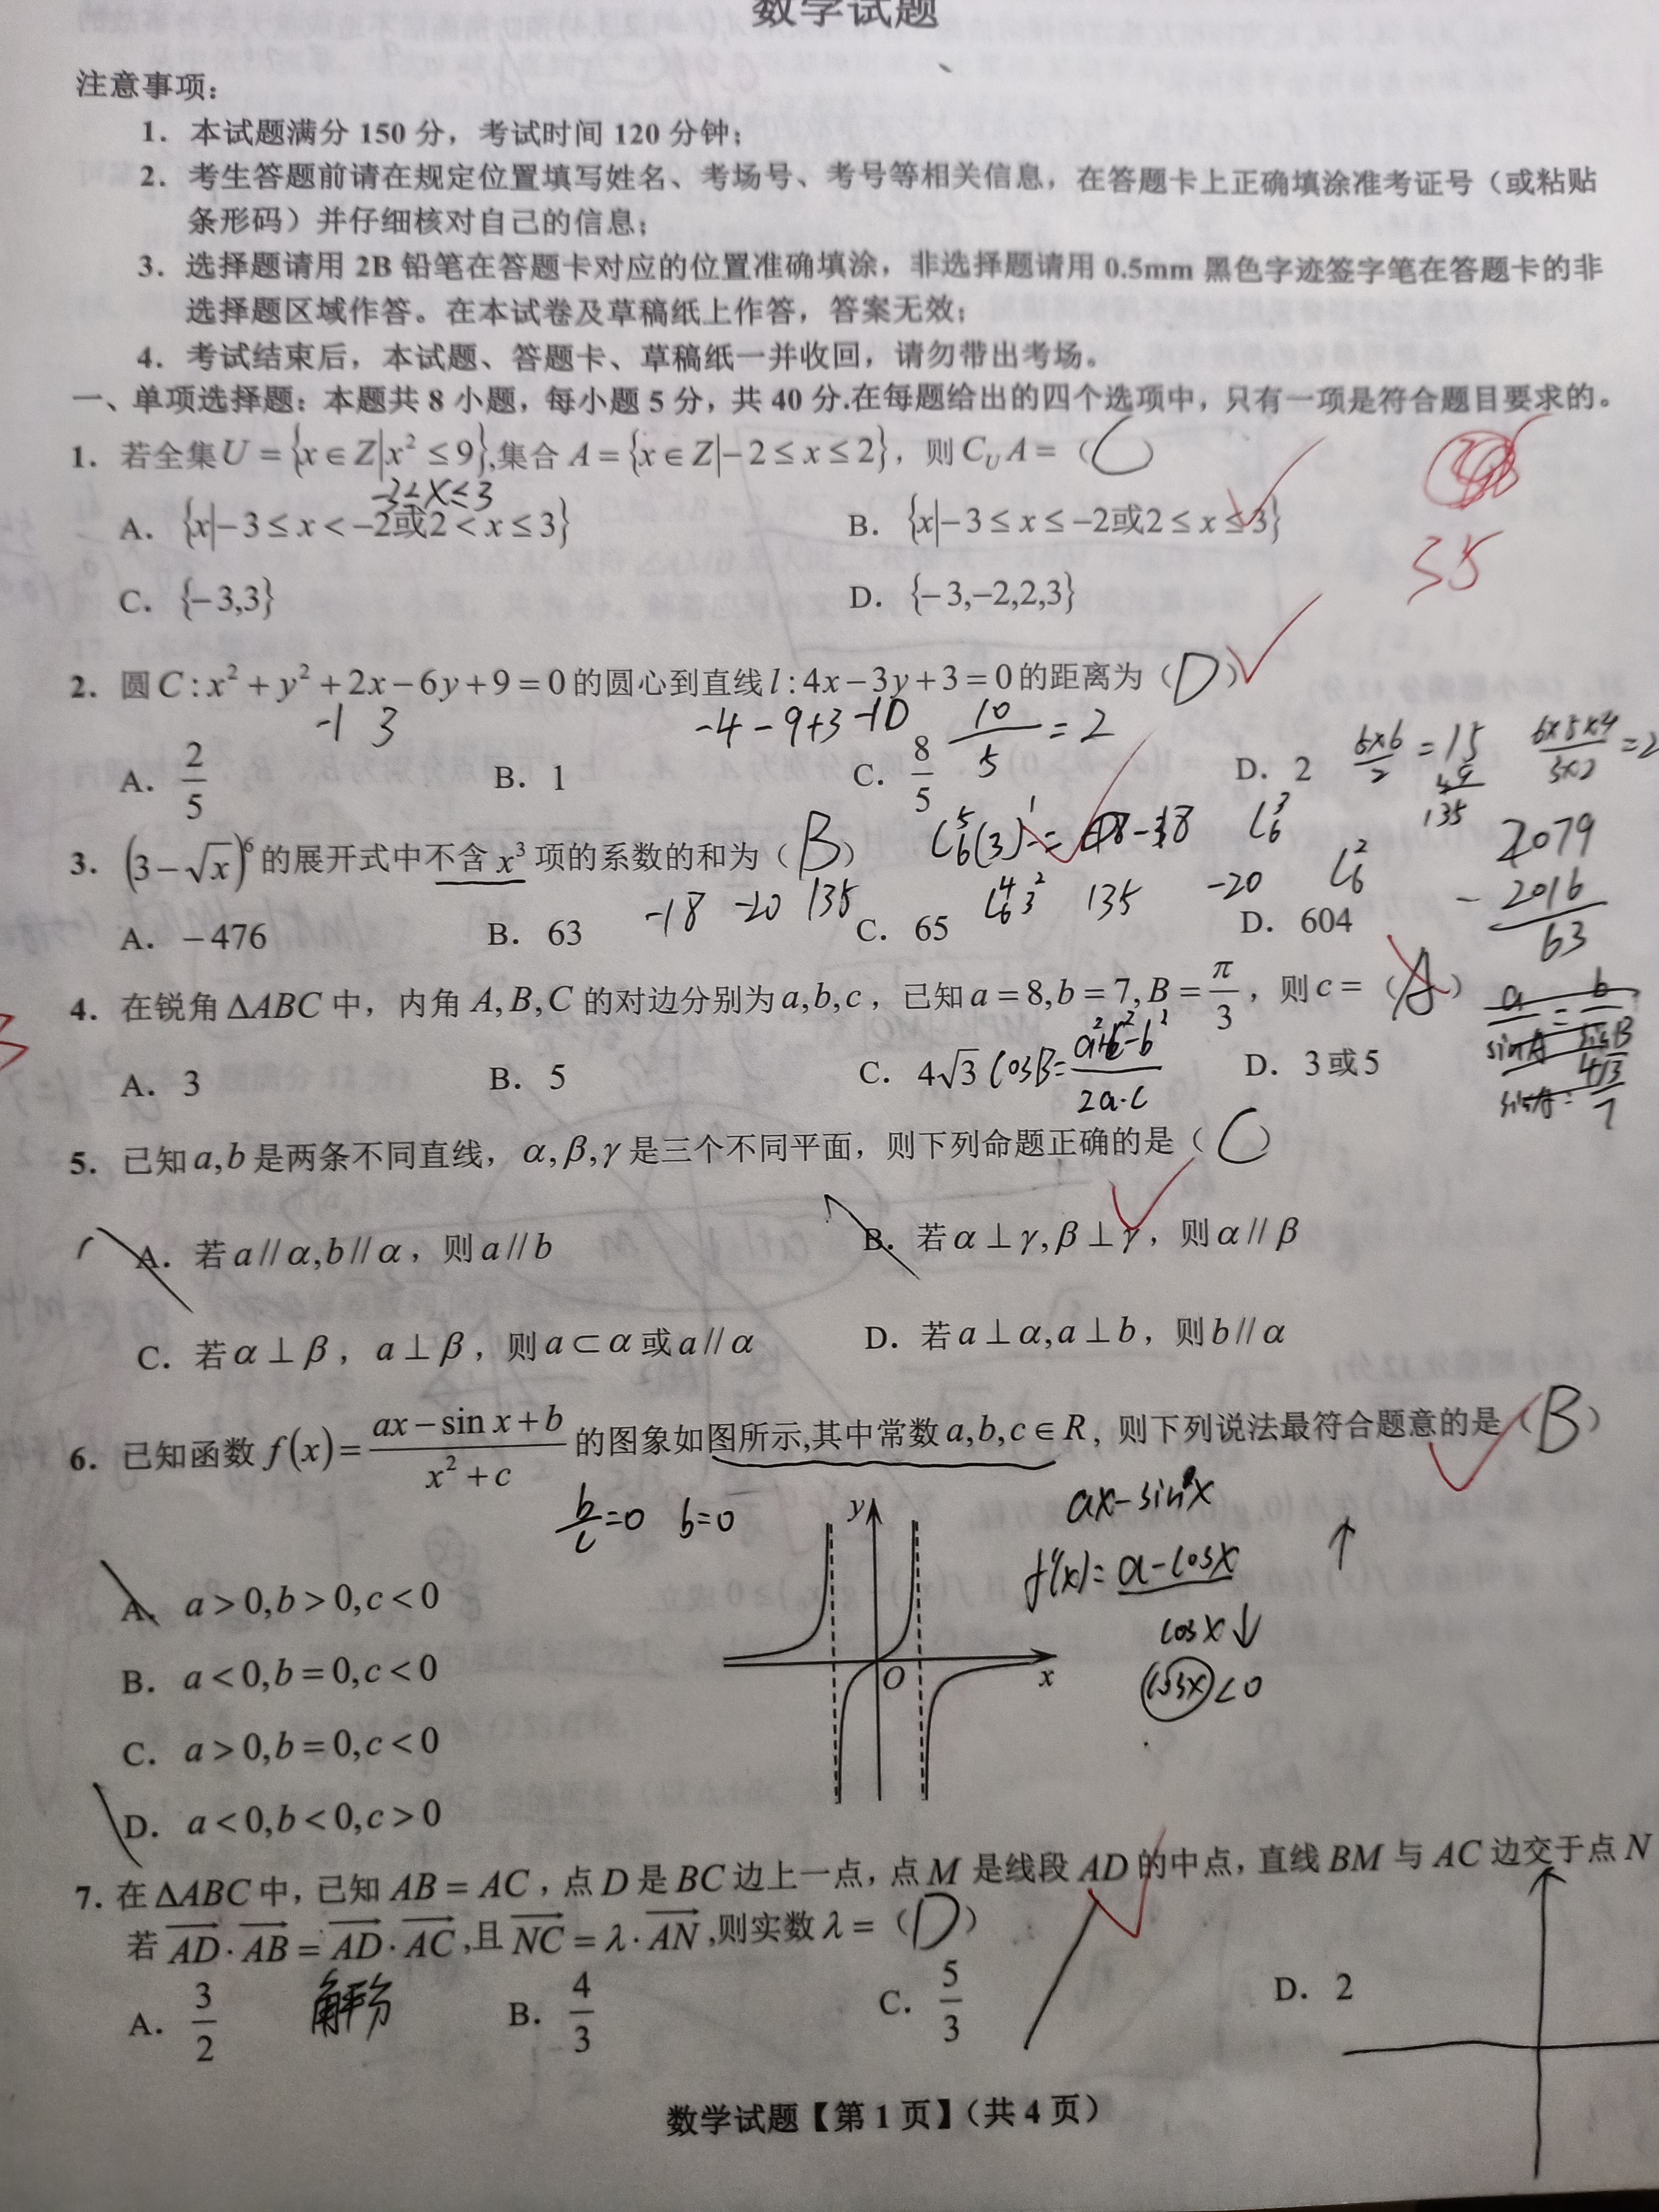 数学试题
注意事项：
1．本试题满分 150 分，考试时间 120 分钟；
2．考生答题前请在规定位置填写姓名、考场号、考号等相关信息，在答题卡上正确填涂准考证号（或粘贴
条形码）并仔细核对自己的信息；
3．选择题请用 2B 铅笔在答题卡对应的位置准确填涂，非选择题请用 0.5mm 黑色字迹签字笔在答题卡的非
选择题区域作答。在本试卷及草稿纸上作答，答案无效；
4．考试结束后，本试题、答题卡、草稿纸一并收回，请勿带出考场。
一、单项选择题：本题共 8 小题，每小题 5 分，共 40 分.在每题给出的四个选项中，只有一项是符合题目要求的。
1．若全集U = {x∈Z|x² ≤ 9},集合 A = {x∈Z|−2 ≤ x ≤ 2}，则 C_U A = （C
-3≤x≤3
A．{x|−3 ≤ x < −2或2 < x ≤ 3} B．{x|−3 ≤ x ≤ −2或2 ≤ x ≤ 3}
35
C．{−3,3} D．{−3,−2,2,3}
2．圆C : x² + y² + 2x − 6y + 9 = 0的圆心到直线l : 4x − 3y + 3 = 0的距离为（D）
-1 3 -4-9+3 -10 10/5 = 2
A．2/5 B．1 C．8/5 D．2 6×5×4
135
3．(3 − √x)⁶的展开式中不含 x³ 项的系数的和为（B） 2079
-18 -20 135 135 -20 - 2016
A．−476 B．63 C．65 D．604 63
4．在锐角 ΔABC 中，内角 A, B, C 的对边分别为a, b, c，已知a = 8, b = 7, B = π/3，则c = （A）
A．3 B．5 C．4√3 cosB= a²+c²-b²/2a·c D．3或5
5．已知a, b是两条不同直线，α, β, γ是三个不同平面，则下列命题正确的是（C）
A．若a // α, b // α，则a // b B．若α ⊥ γ, β ⊥ γ，则α // β
C．若α ⊥ β，a ⊥ β，则a ⊂ α或a // α D．若a ⊥ α, a ⊥ b，则b // α
6．已知函数 f(x) = (ax − sin x + b)/(x² + c) 的图象如图所示,其中常数a, b, c ∈ R，则下列说法最符合题意的是（B）
b/c=0 b=0 y ax-sinx
f'(x)= a-cosx ↑
A．a > 0, b > 0, c < 0 cosx↓
B．a < 0, b = 0, c < 0 O x cosx<0
C．a > 0, b = 0, c < 0
D．a < 0, b < 0, c > 0
7．在 ΔABC 中，已知 AB = AC，点 D 是 BC 边上一点，点 M 是线段 AD 的中点，直线 BM 与 AC 边交于点 N
若 AD · AB = AD · AC ,且 NC = λ · AN ,则实数 λ = （D）
A．3/2 角平分 B．4/3 C．5/3 D．2
数学试题【第 1 页】（共 4 页）